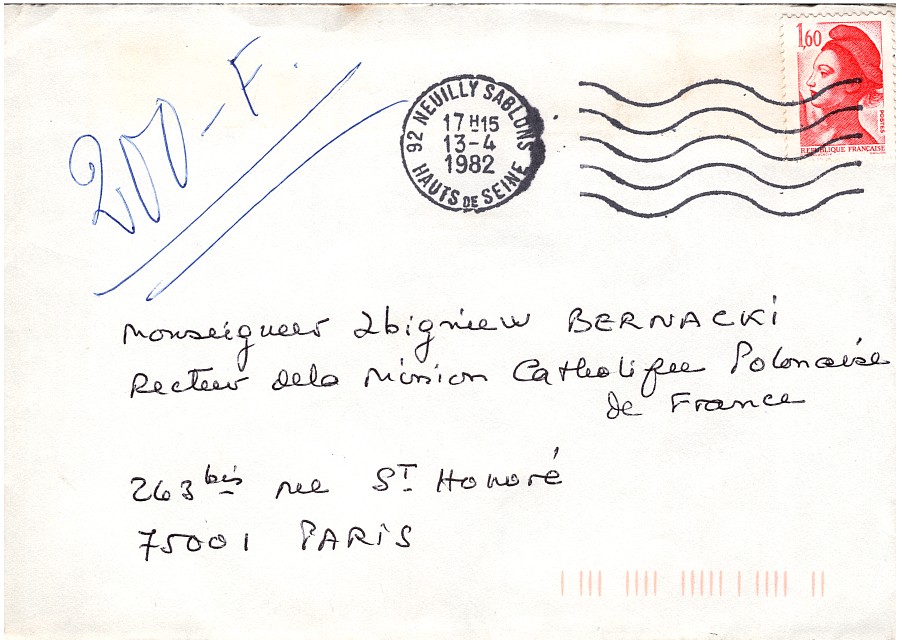 200-F.
92 NEUILLY SABLONS
17H15
13-4
1982
HAUTS DE SEINE
1,60
POSTES
REPUBLIQUE FRANCAISE
Monseigneur Zbigniew BERNACKI
Recteur de la Mission Catholique Polonaise
de France
263 bis rue St Honoré
75001 PARIS